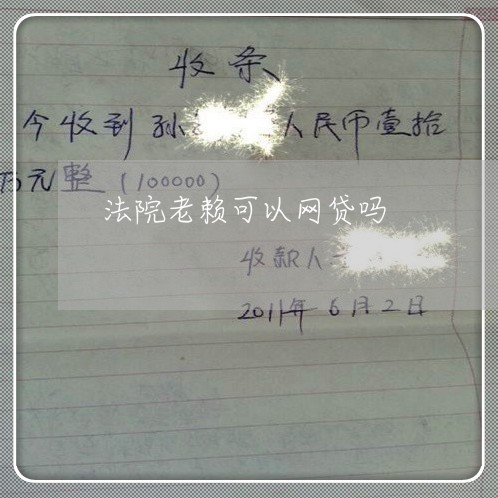 收条
今收到孙 人民币壹拾
万元整（100000）
法院老赖可以网贷吗
收款人
2011年6月2日